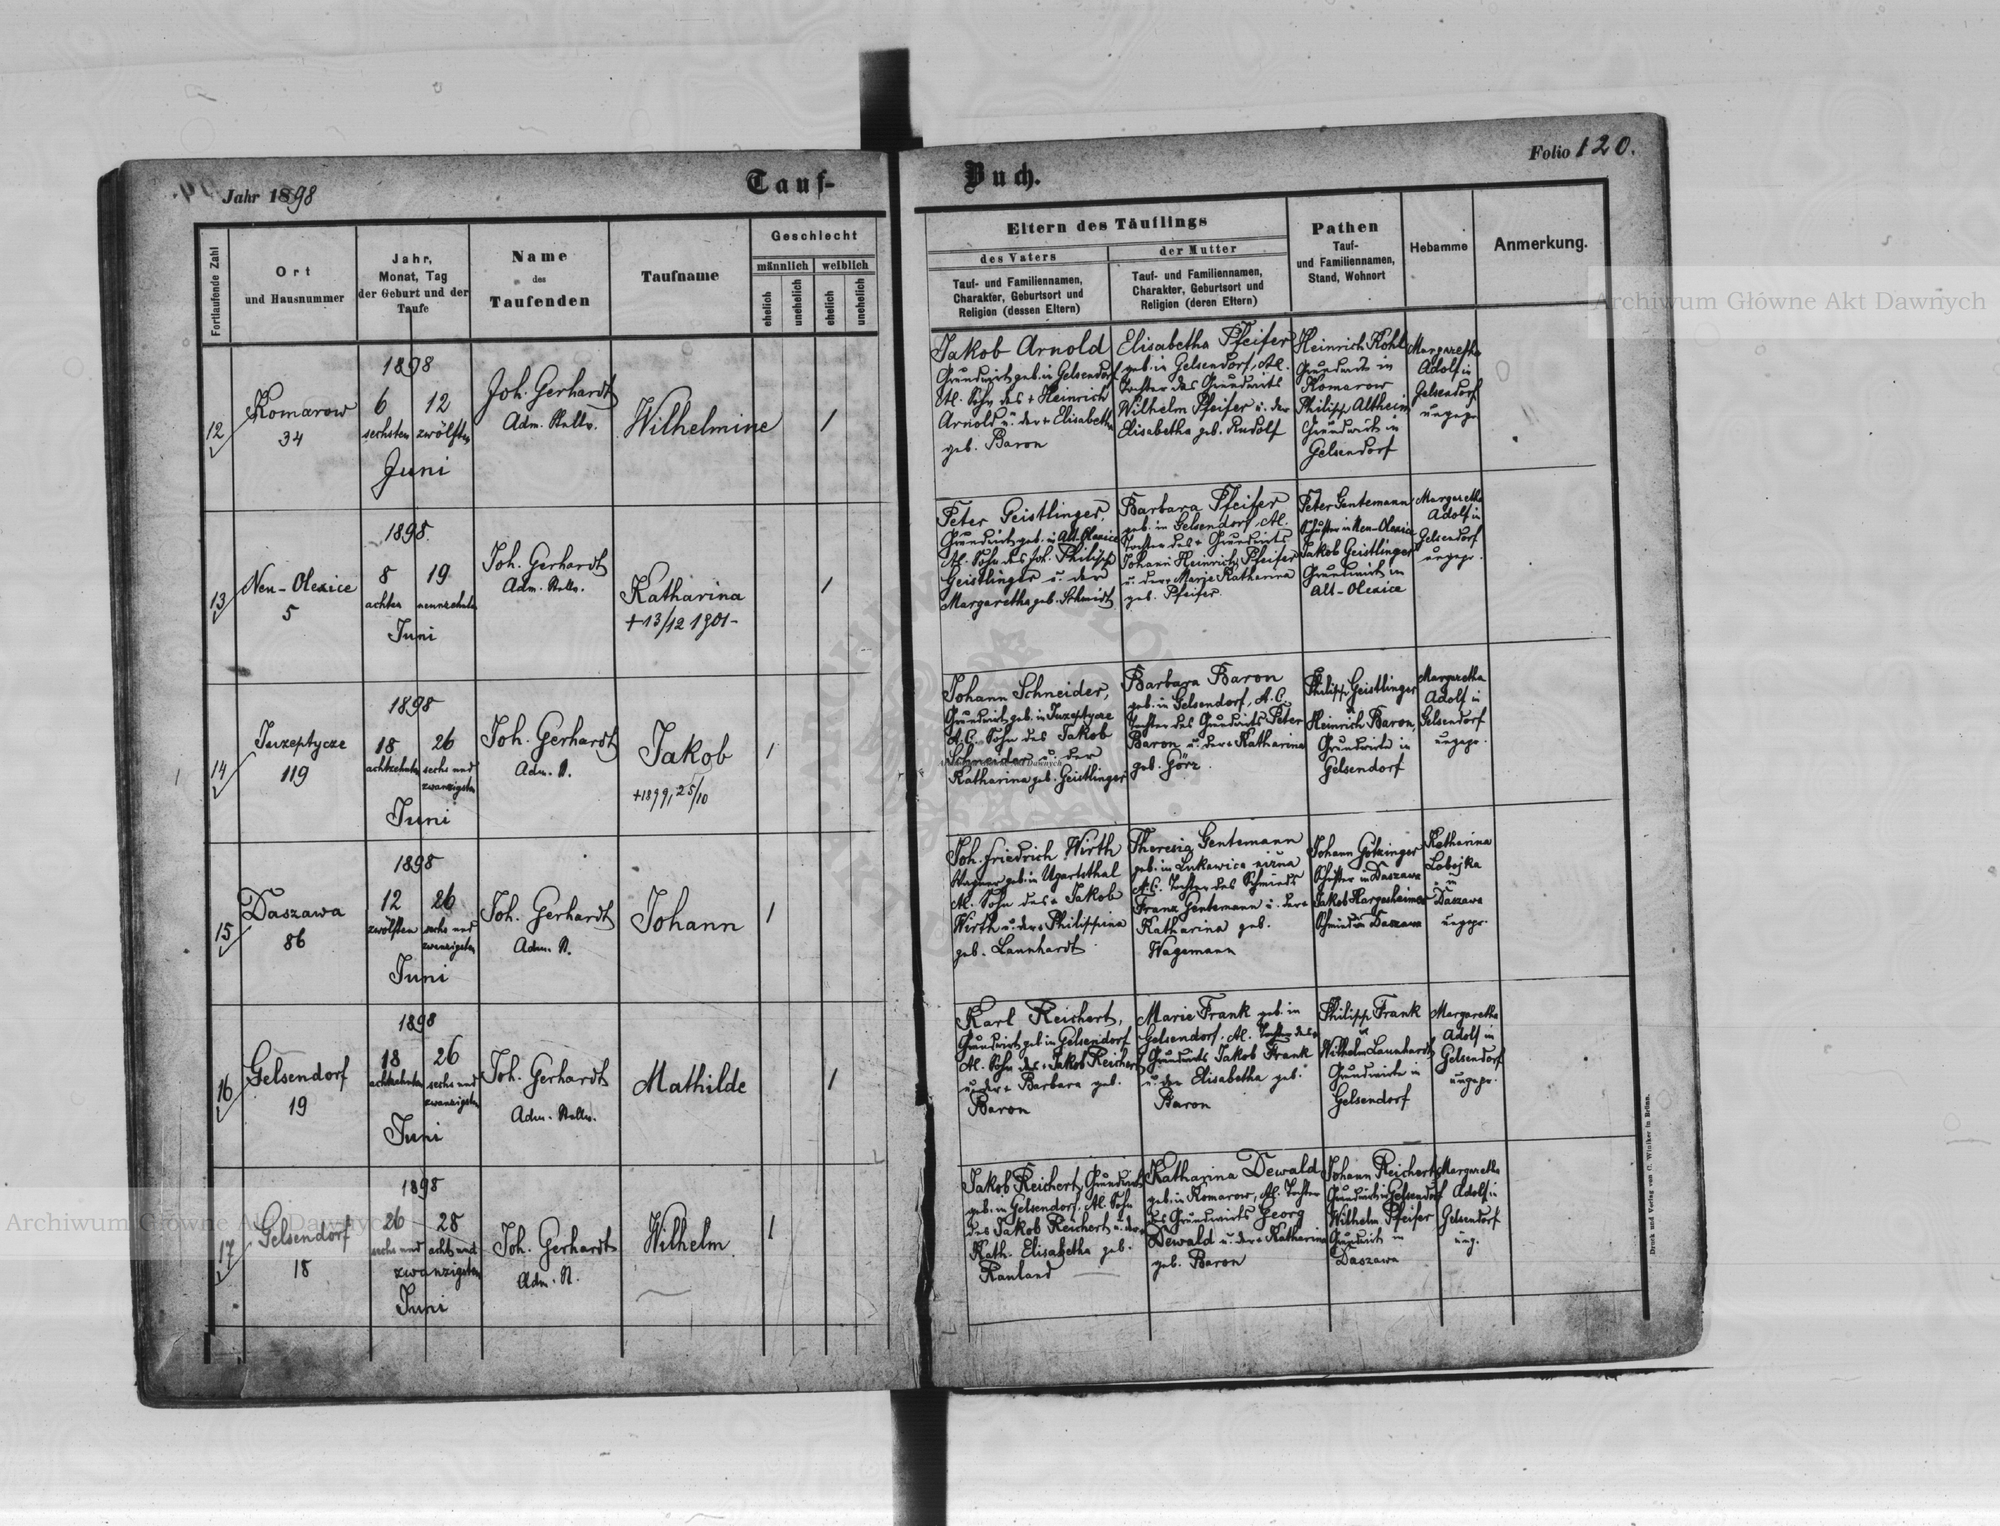 Jahr 1898
Tauf-
Buch.
Folio 120.
Fortlaufende Zahl
Ort
und Hausnummer
Jahr,
Monat, Tag
der Geburt und der
Taufe
Name
des
Taufenden
Taufname
Geschlecht
männlich
weiblich
ehelich
unehelich
ehelich
unehelich
Eltern des Täuflings
des Vaters
der Mutter
Tauf- und Familiennamen,
Charakter, Geburtsort und
Religion (dessen Eltern)
Tauf- und Familiennamen,
Charakter, Geburtsort und
Religion (deren Eltern)
Pathen
Tauf-
und Familiennamen,
Stand, Wohnort
Hebamme
Anmerkung.
12
Komarow
34
1898
6 12
sechsten zwölften
Juni
Joh. Gerhardt
Adm. Stellv.
Wilhelmine
1
Jakob Arnold
Grundwirt geb. in Gelsendorf
Sohn des + Heinrich
Arnold u. der + Elisabeth
geb. Baron
Elisabetha Pfeifer
geb. in Gelsendorf,
Tochter des Grundwirts
Wilhelm Pfeifer u. der
Elisabetha geb. Rudolf
Heinrich Kohl
Grundwirt in
Komarow
Philipp Altheim
Grundwirt in
Gelsendorf
Margaretha
Adolf in
Gelsendorf
ungepr.
13
Neu-Olexice
5
1898.
8 19
achten neunzehnten
Juni
Joh. Gerhardt
Adm. Stellv.
Katharina
+ 13/12 1901-
1
Peter Geistlinger,
Grundwirt geb. in Alt-Olexice
Sohn des Joh. Philipp
Geistlinger u. der
Margaretha geb. Schmidt
Barbara Pfeifer
geb. in Gelsendorf,
Tochter des + Grundwirts
Johann Heinrich Pfeifer
u. der + Marie Katharina
geb. Pfeifer.
Peter Gentemann
Schuster in Neu-Olexice
Jakob Geistlinger
Grundwirt in
Alt-Olexice
Margaretha
Adolf in
Gelsendorf
ungepr.
14
Juzeptycze
119
1898
18 26
achtzehnten sechs und
zwanzigsten
Juni
Joh. Gerhardt
Adm. St.
Jakob
+ 1899, 25/10
1
Johann Schneider,
Grundwirt geb. in Juzeptycze
A.C. Sohn des Jakob
Schneider u. der
Katharina geb. Geistlinger
Barbara Baron
geb. in Gelsendorf, A.C.
Tochter des Grundwirts Peter
Baron u. der + Katharina
geb. Görz.
Philipp Geistlinger
u.
Heinrich Baron,
Grundwirte in
Gelsendorf
Margaretha
Adolf in
Gelsendorf
ungepr.
15
Daszawa
86
1898
12 26
zwölften sechs und
zwanzigsten
Juni
Joh. Gerhardt
Adm. St.
Johann
1
Joh. Friedrich Wirth
Wagner geb. in Ugartsthal
Sohn des + Jakob
Wirth u. der + Philippina
geb. Launhardt
Theresia Gentemann
geb. in Lukawica nizna
A.C. Tochter des Schmieds
Franz Gentemann u. der +
Katharina geb.
Wagemann
Johann Götzinger
Schuster in Daszawa
Jakob Hargesheimer
Schmied in Daszawa
Katharina
in
Daszawa
ungepr.
16
Gelsendorf
19
1898
18 26
achtzehnten sechs und
zwanzigsten
Juni
Joh. Gerhardt
Adm. Stellv.
Mathilde
1
Karl Reichert,
Grundwirt geb. in Gelsendorf
Sohn des + Jakob Reichert
u. der + Barbara geb.
Baron
Marie Frank geb. in
Gelsendorf, Tochter des +
Grundwirts Jakob Frank
u. der Elisabetha geb.
Baron
Philipp Frank
u.
Wilhelm Launhardt
Grundwirte in
Gelsendorf
Margaretha
Adolf in
Gelsendorf
ungepr.
17
Gelsendorf
18
1898
26 28
sechs und acht und
zwanzigsten
Juni
Joh. Gerhardt
Adm. St.
Wilhelm
1
Jakob Reichert, Grundwirt
geb. in Gelsendorf, Sohn
des Jakob Reichert u. der
Kath. Elisabetha geb.
Rauland
Katharina Dewald
geb. in Komarow, Tochter
des Grundwirts Georg
Dewald u. der + Katharina
geb. Baron
Johann Reichert
Grundwirt in Gelsendorf
Wilhelm Pfeifer
Grundwirt in
Daszawa
Margaretha
Adolf in
Gelsendorf
ung.
Druck und Verlag von C. Winiker in Brünn.
Archiwum Główne Akt Dawnych
Archiwum Główne Akt Dawnych